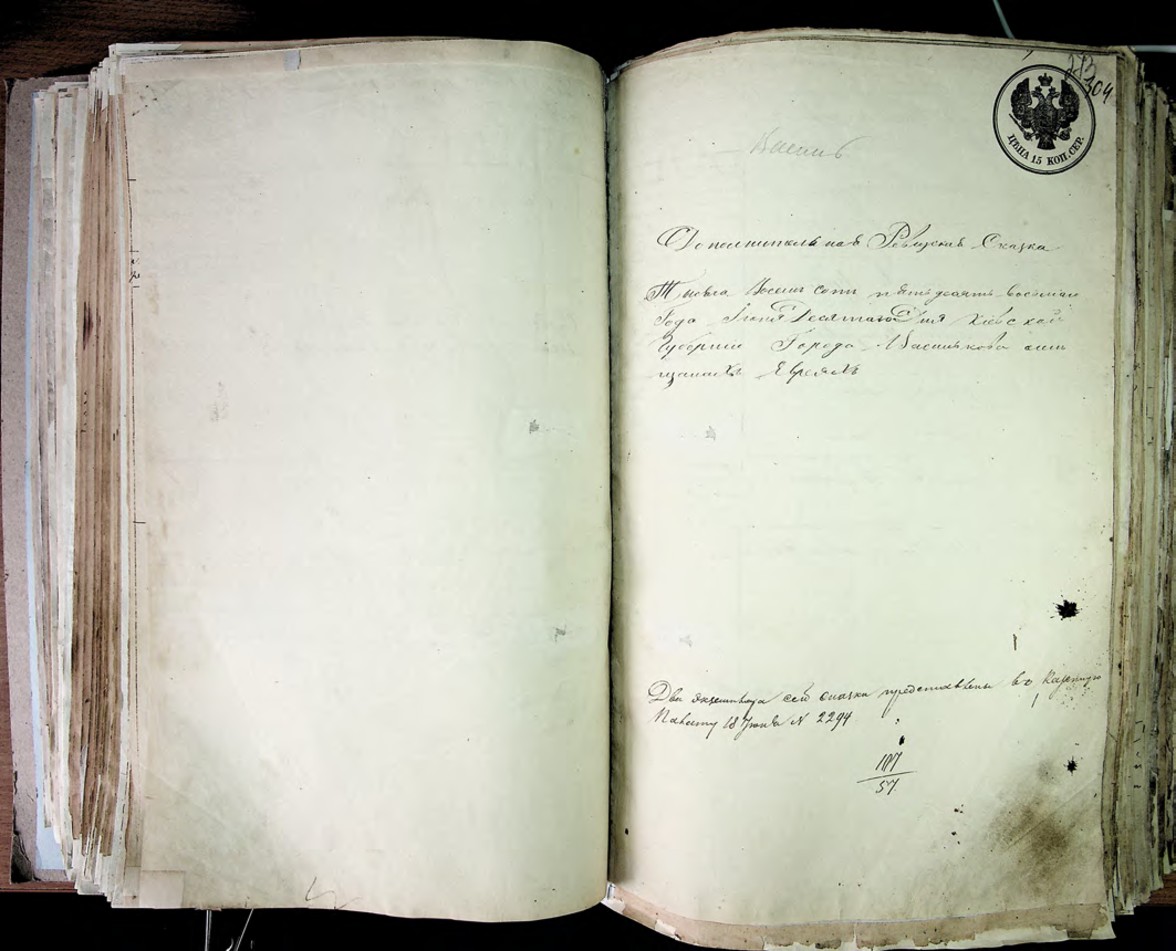 304
ЦѢНА 15 КОП. СЕР.
Дополнительная Ревизская Сказка
Тысяча Восемь сотъ пятьдесятъ восьмаго
Года Іюня Десятаго Дня Кіевской
Губерніи Города Василькова о мѣ
щанахъ Евреяхъ
Два экземпляра сей сказки представлены въ Казенную
Палату 18 Іюня N 2294
107
57